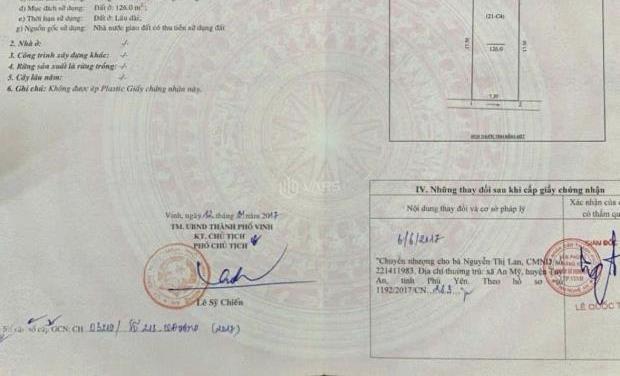 d) Mục đích sử dụng: Đất ở: 126.0 m²;
e) Thời hạn sử dụng: Đất ở: Lâu dài;
g) Nguồn gốc sử dụng: Nhà nước giao đất có thu tiền sử dụng đất
2. Nhà ở: -/-
3. Công trình xây dựng khác: -/-
4. Rừng sản xuất là rừng trồng: -/-
5. Cây lâu năm: -/-
6. Ghi chú: Không được ép Plastic Giấy chứng nhận này.
(21-C4)
126.0
1
2
VARS
Vinh, ngày 12 tháng 01 năm 2017
TM. UBND THÀNH PHỐ VINH
KT. CHỦ TỊCH
PHÓ CHỦ TỊCH
Lê Sỹ Chiến
Số vào sổ cấp GCN: CH
(2017)
IV. Những thay đổi sau khi cấp giấy chứng nhận
Nội dung thay đổi và cơ sở pháp lý
Xác nhận của
có thẩm qu
6/6/2017
"Chuyển nhượng cho bà Nguyễn Thị Lan, CMND số
221411983. Địa chỉ thường trú: xã An Mỹ, huyện Tuy
An, tỉnh Phú Yên. Theo hồ sơ
1192/2017/CN
GIÁM ĐỐC
LÊ QUỐC